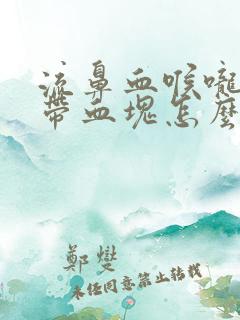 流鼻血喉嚨
帶血塊怎麼
鄭燮
未经同意禁止转载